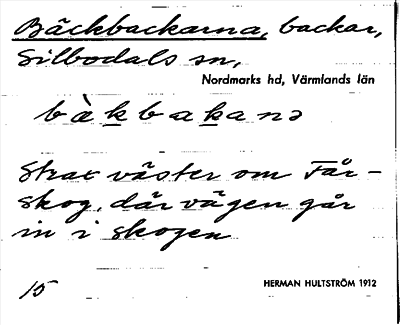 Bäckbackarna, backar,
Silbodals sn,
Nordmarks hd, Värmlands län
bàkbakanə
Strax väster om Får-
skog, där vägen går
in i skogen
15
HERMAN HULTSTRÖM 1912